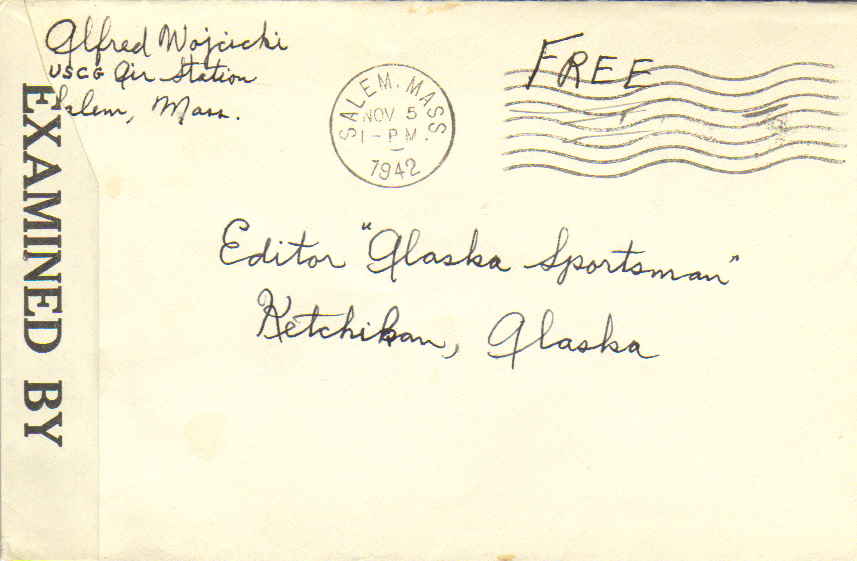 Alfred Wojcicki
USCG Air Station
Salem, Mass.
EXAMINED BY
SALEM. MASS.
NOV 5
1-PM
1942
FREE
Editor "Alaska Sportsman"
Ketchikan, Alaska